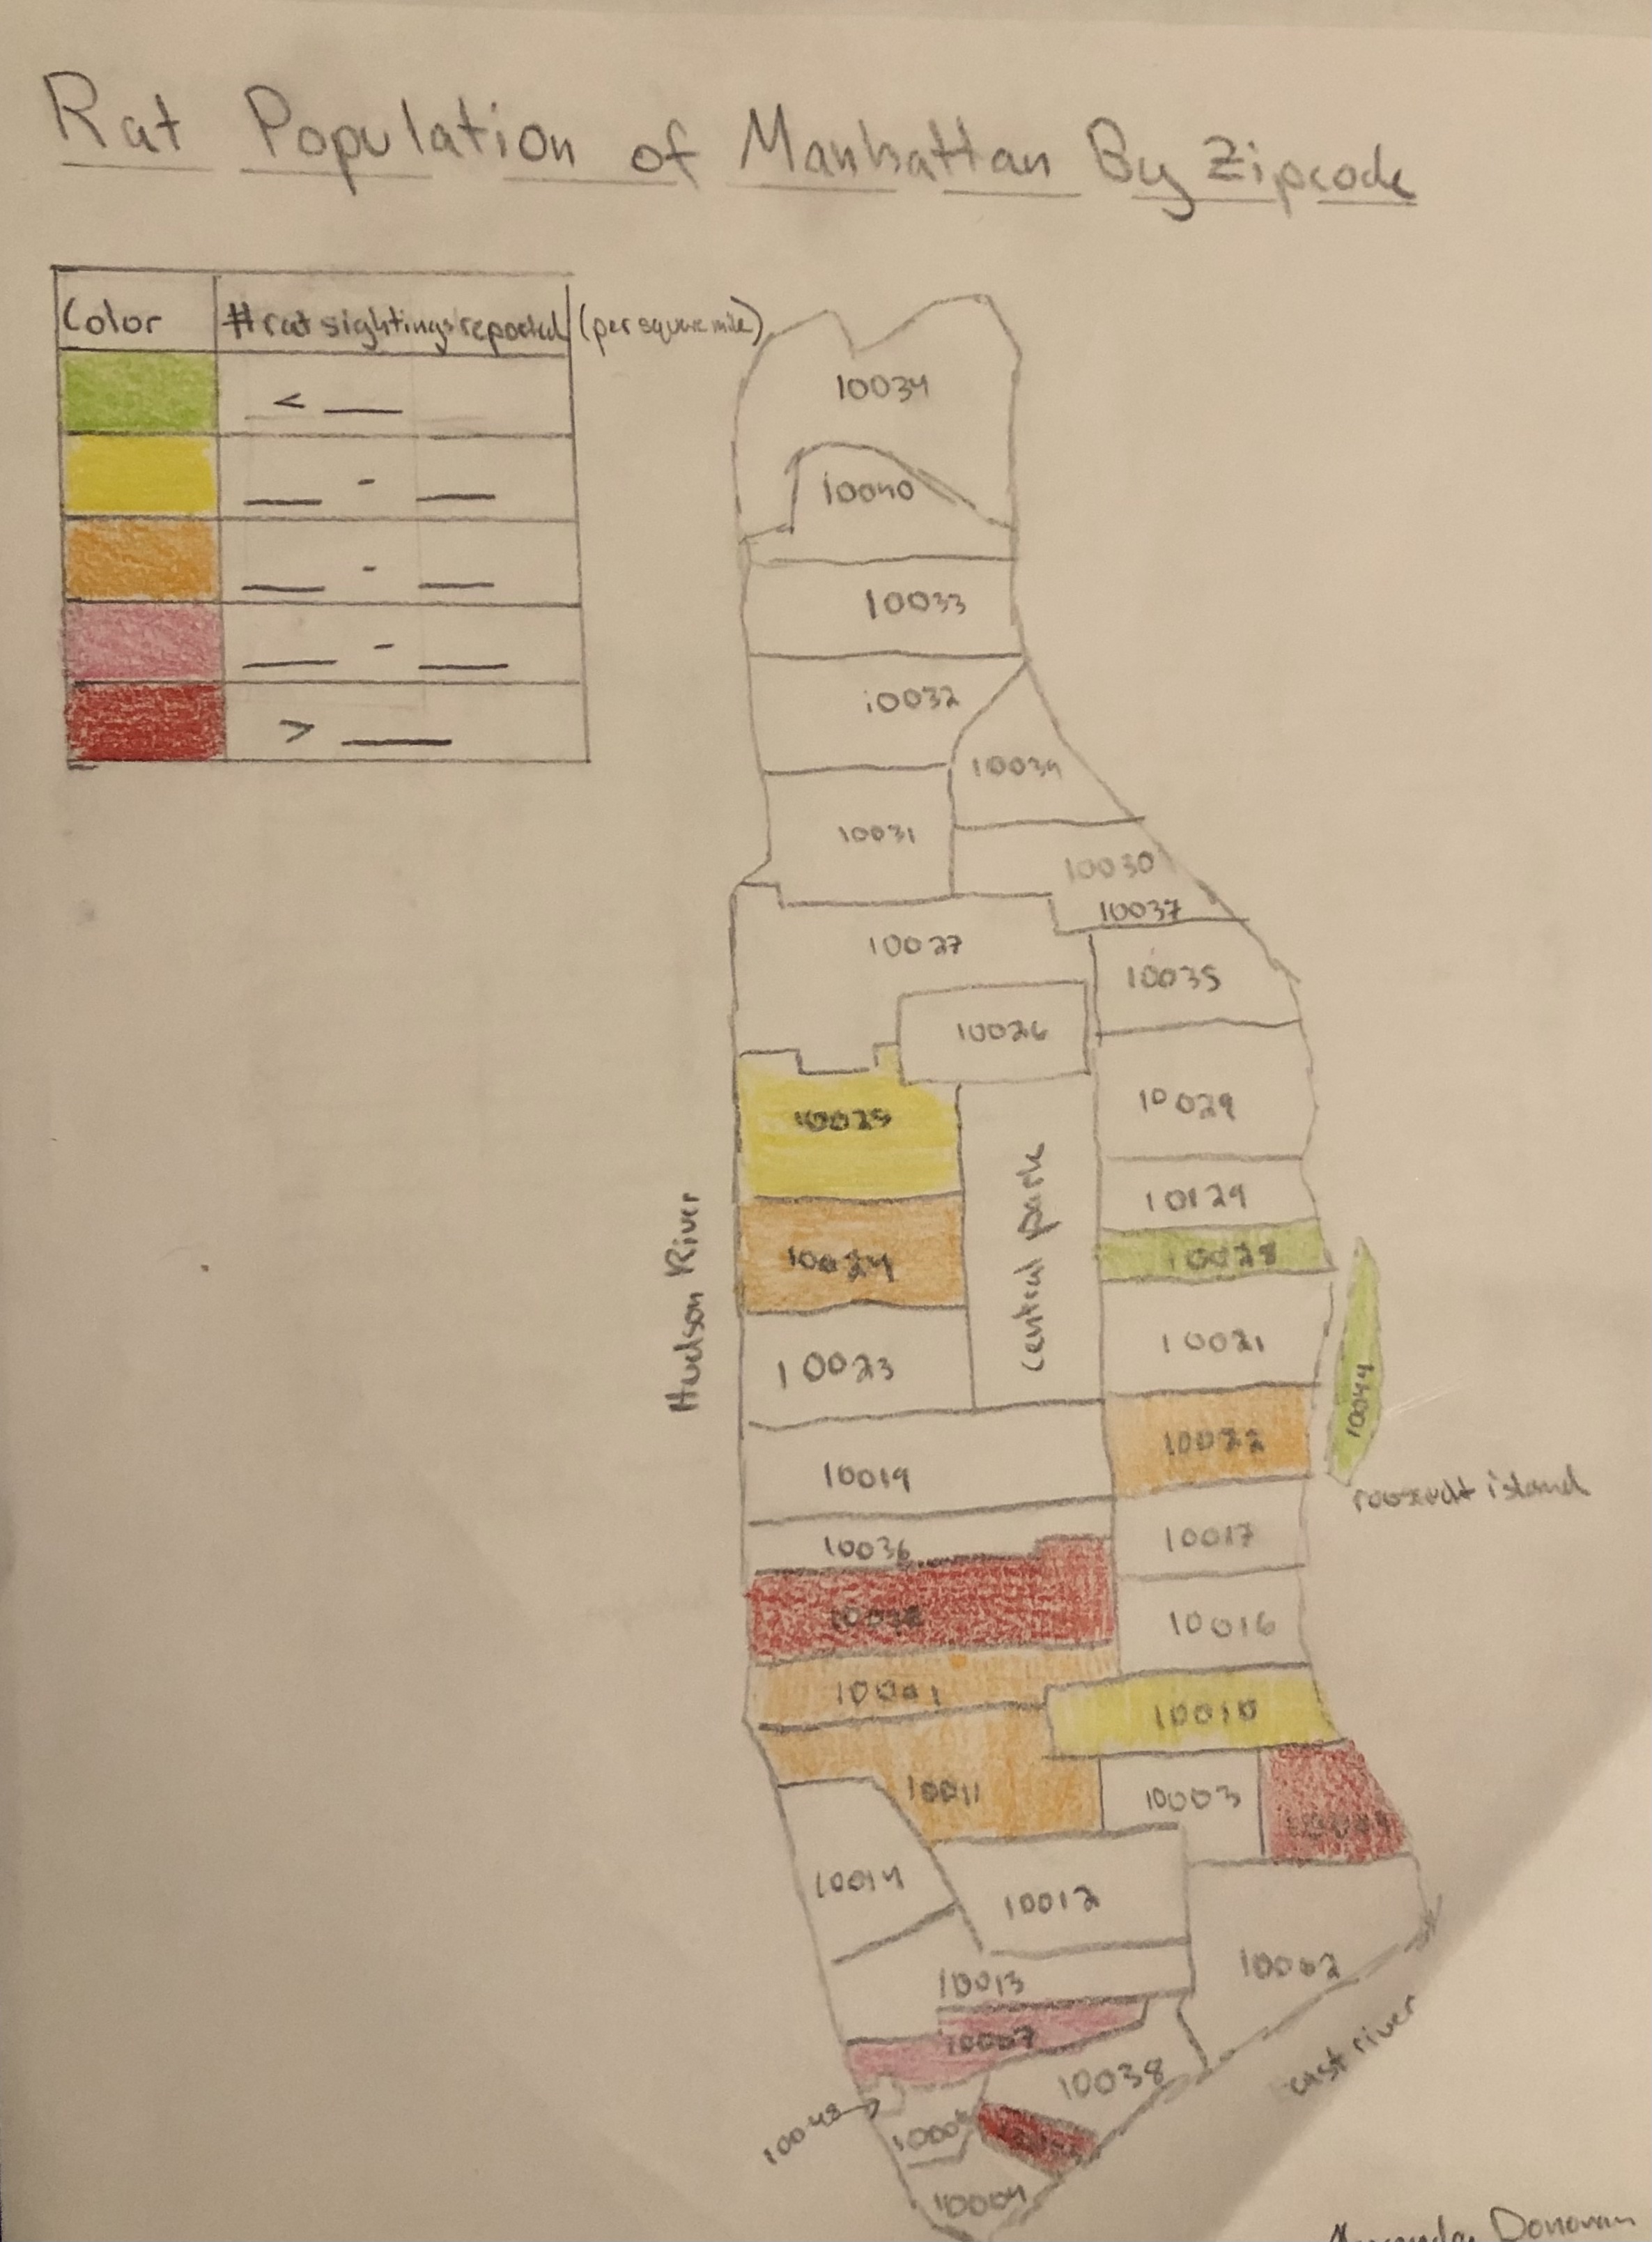 Rat Population of Manhattan By Zipcode
Color # rat sightings reported (per square mile)
<
-
-
-
>
10034
10040
10033
10032
10039
10031
10030
10037
10027
10035
10026
10029
10025
10129
10028
10024
central park
Hudson River
10021
10044
10023
10022
10019
roosevelt island
10017
10036
10018
10016
10001
10010
10011
10003
10009
10014
10012
10002
10013
10007
10038
east river
10048
10004
Donovan